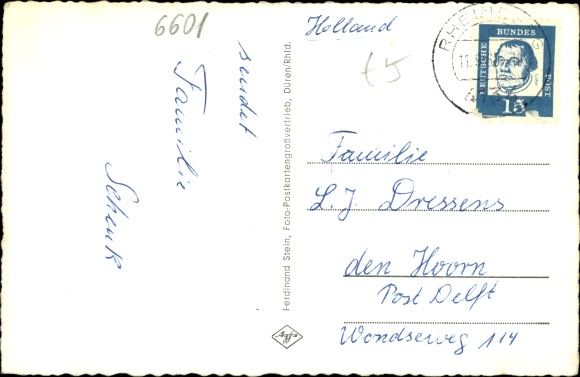 6601
Holland
£5
sendet
Familie
Schenk
Ferdinand Stein, Foto-Postkartengroßvertrieb, Düren/Rhld.
DEUTSCHE
BUNDES
POST
15
Familie
L.J Dressens
den Hoorn
Post Delft
Wondseweg 114